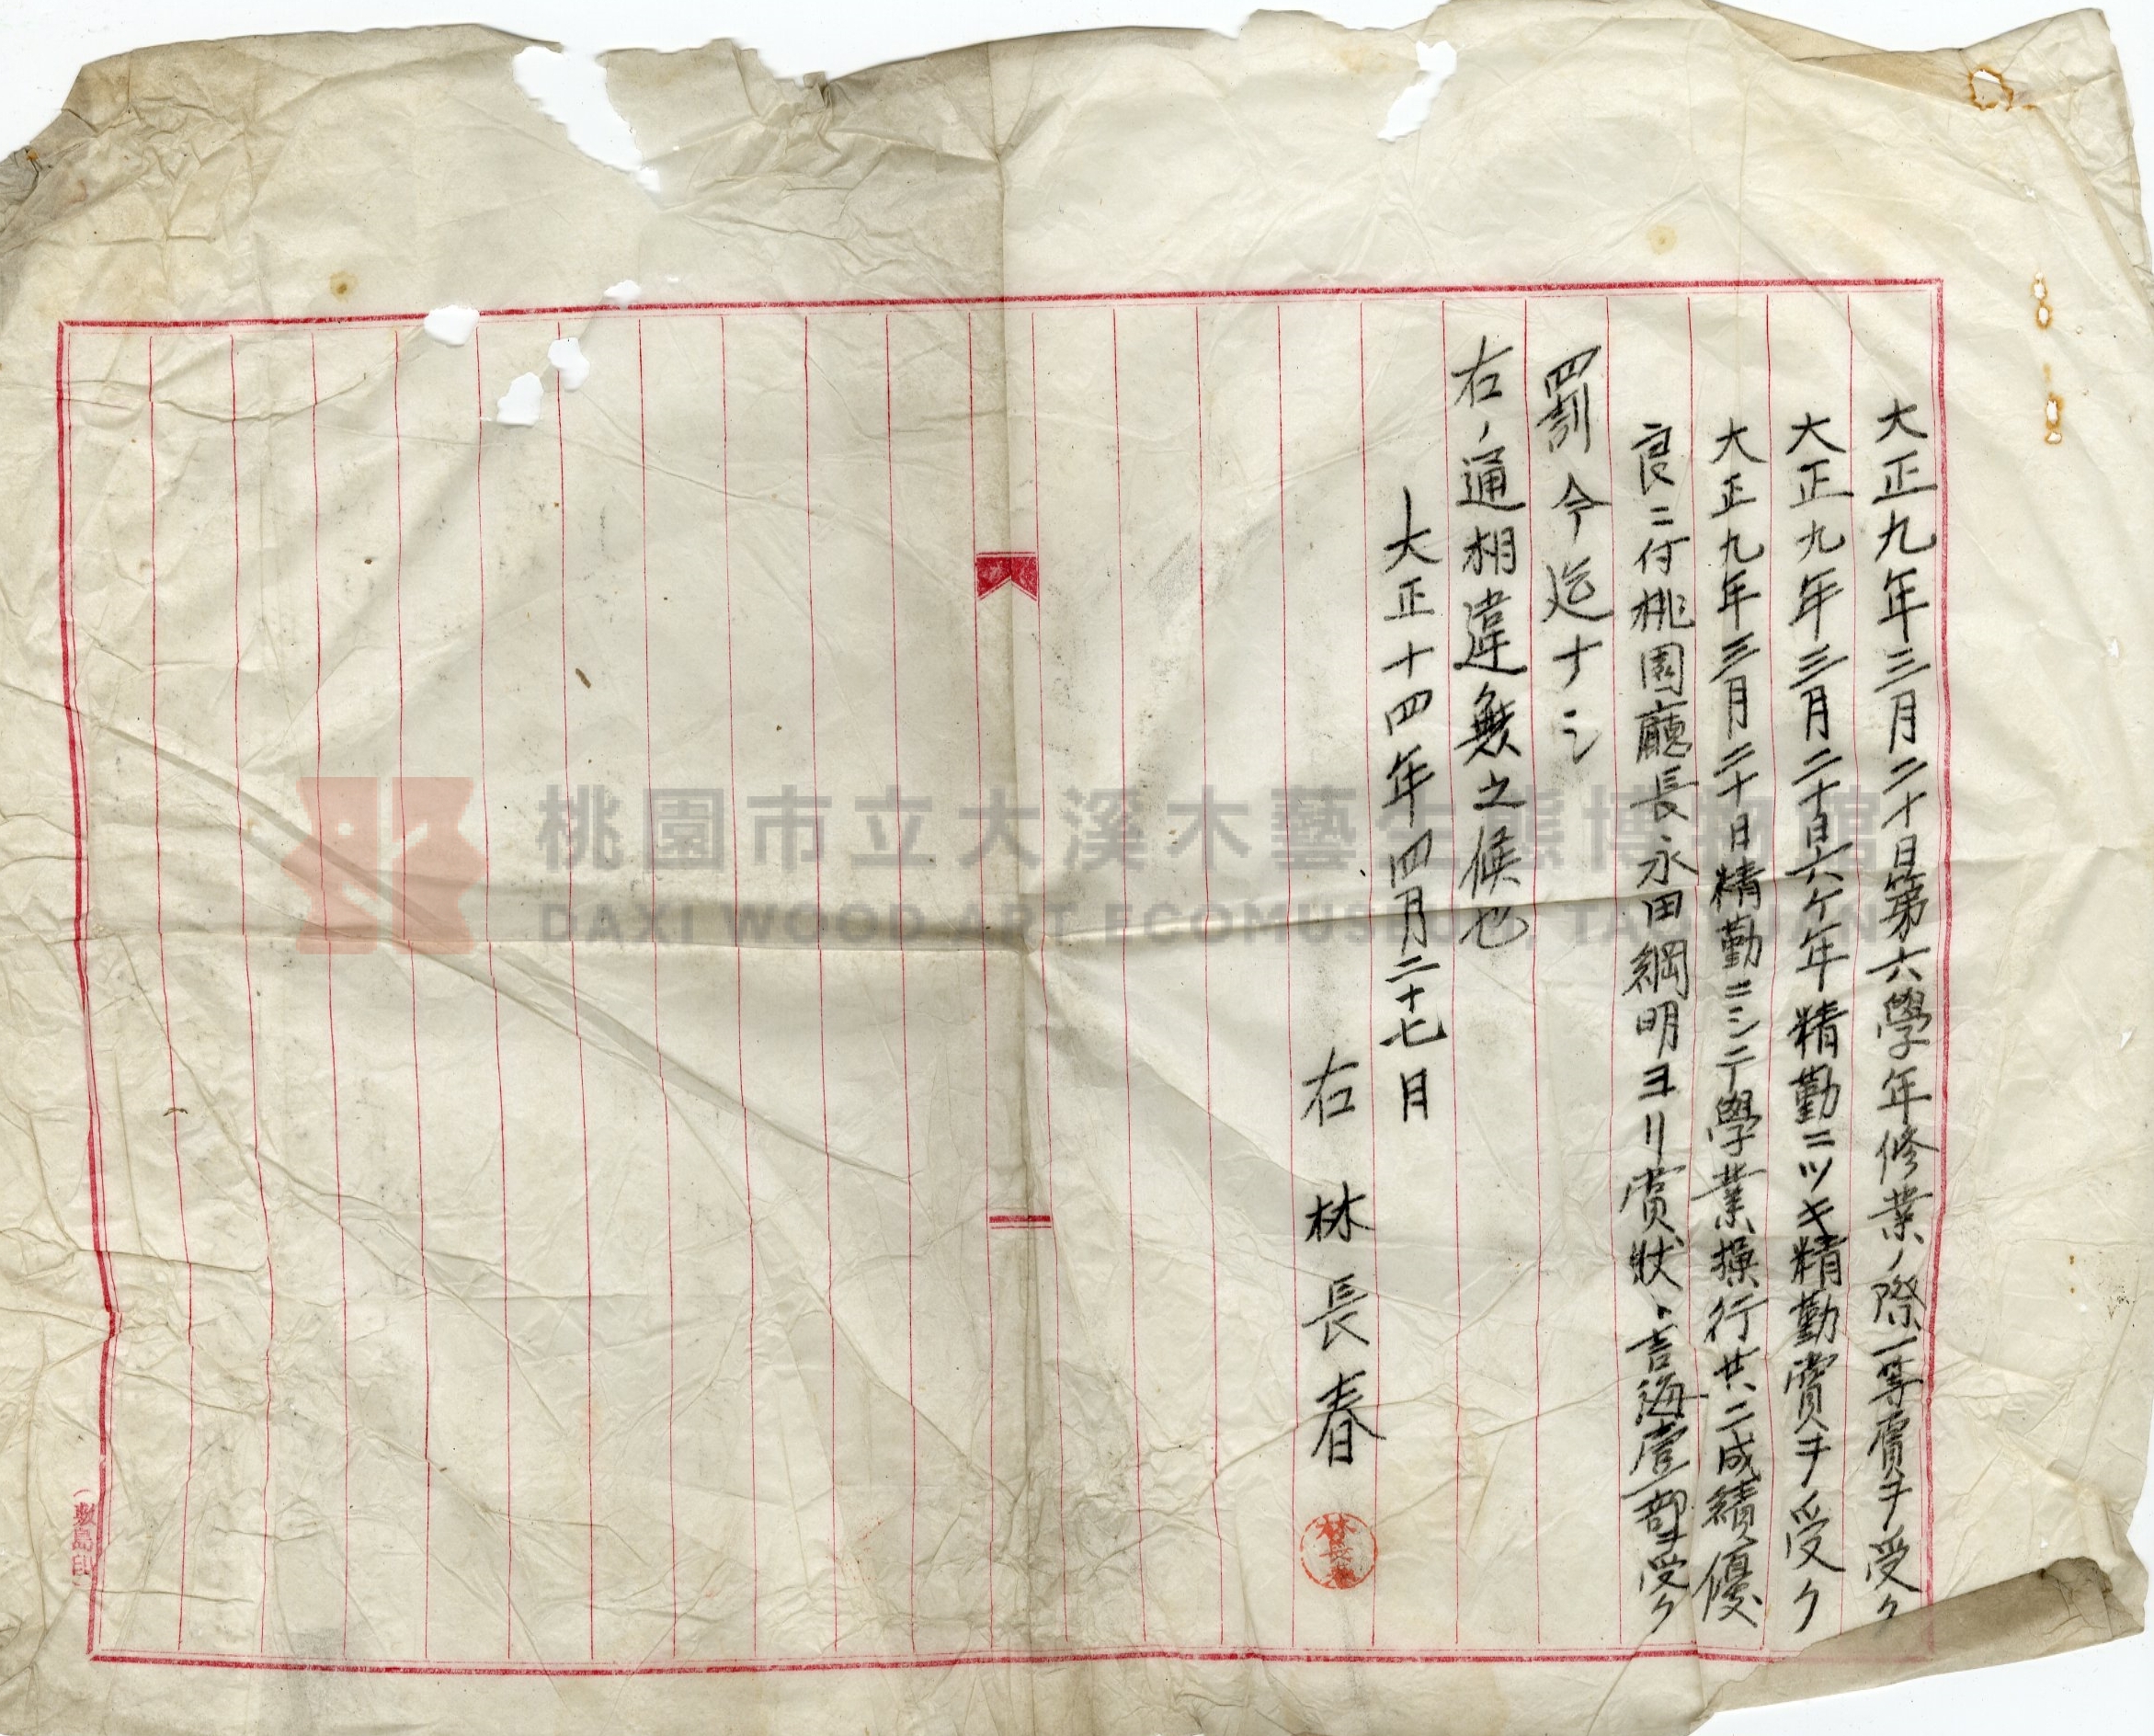 大正九年三月二十日第六學年修業ノ際一等賞ヲ受ク
大正九年三月二十日六ケ年精勤ニツキ精勤賞ヲ受ク
大正九年三月二十日精勤ニシテ學業操行共ニ成績優
良ニ付桃園廳長永田綱明ヨリ賞狀、言海壹部ヲ受ク
罰今迄ナシ
右ノ通相違無之候也
大正十四年四月二十七日
右 林長春
林長春
(敷島印)
桃園市立大溪木藝生態博物館
DAXI WOOD ART ECOMUSEUM, TAOYUAN